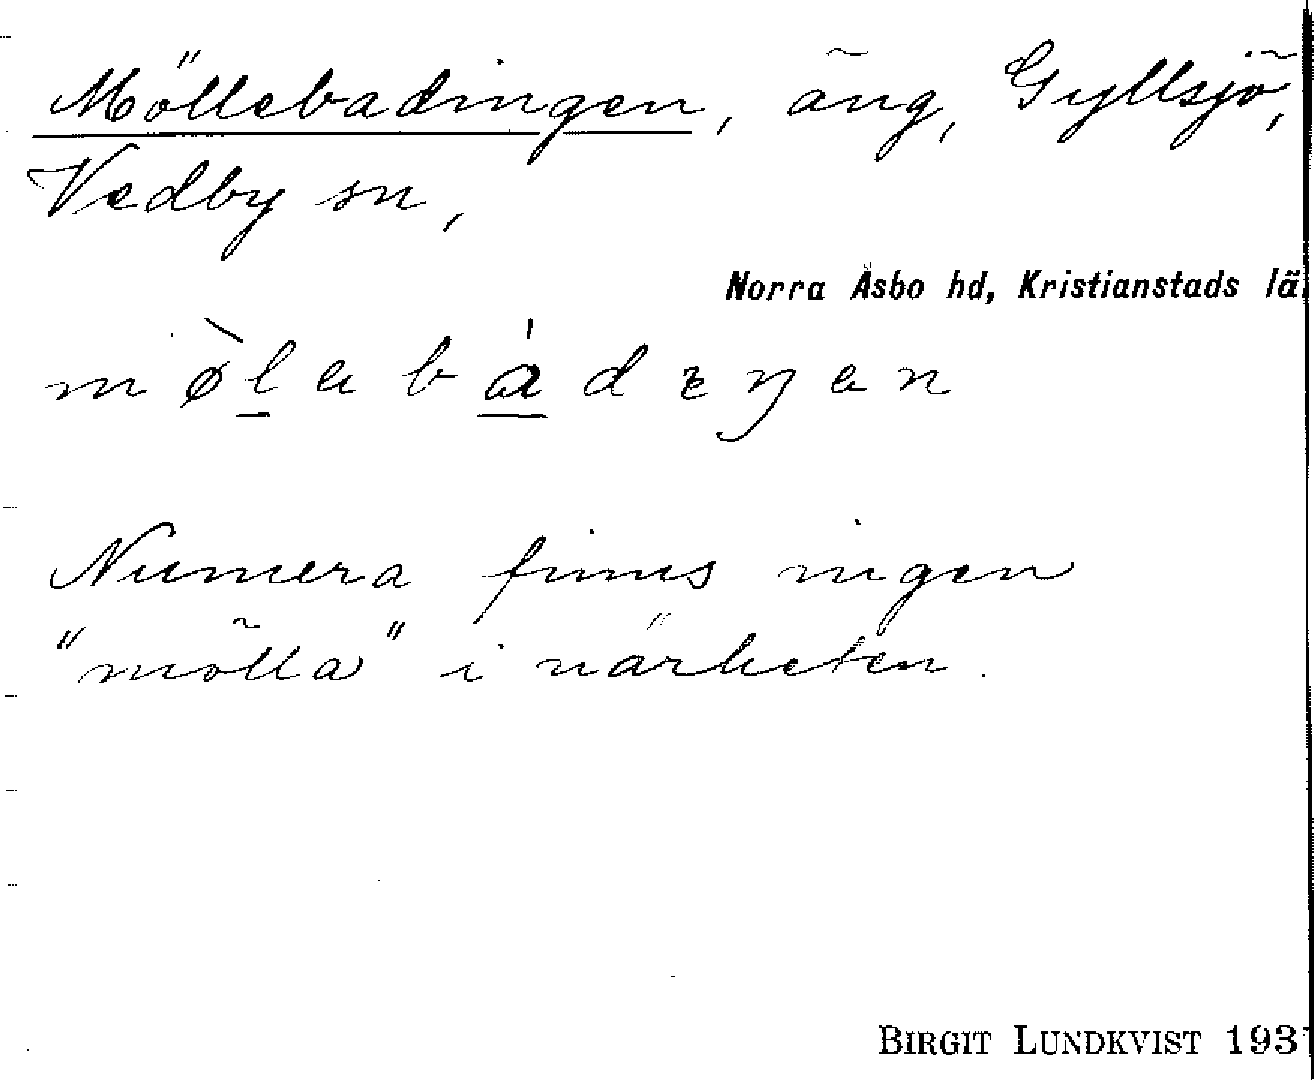 Möllebadingen, äng, Gyllsjö,
Vedby sn,
Norra Åsbo hd, Kristianstads lä
Numera finns ingen
"mölla" i närheten.
BIRGIT LUNDKVIST 193